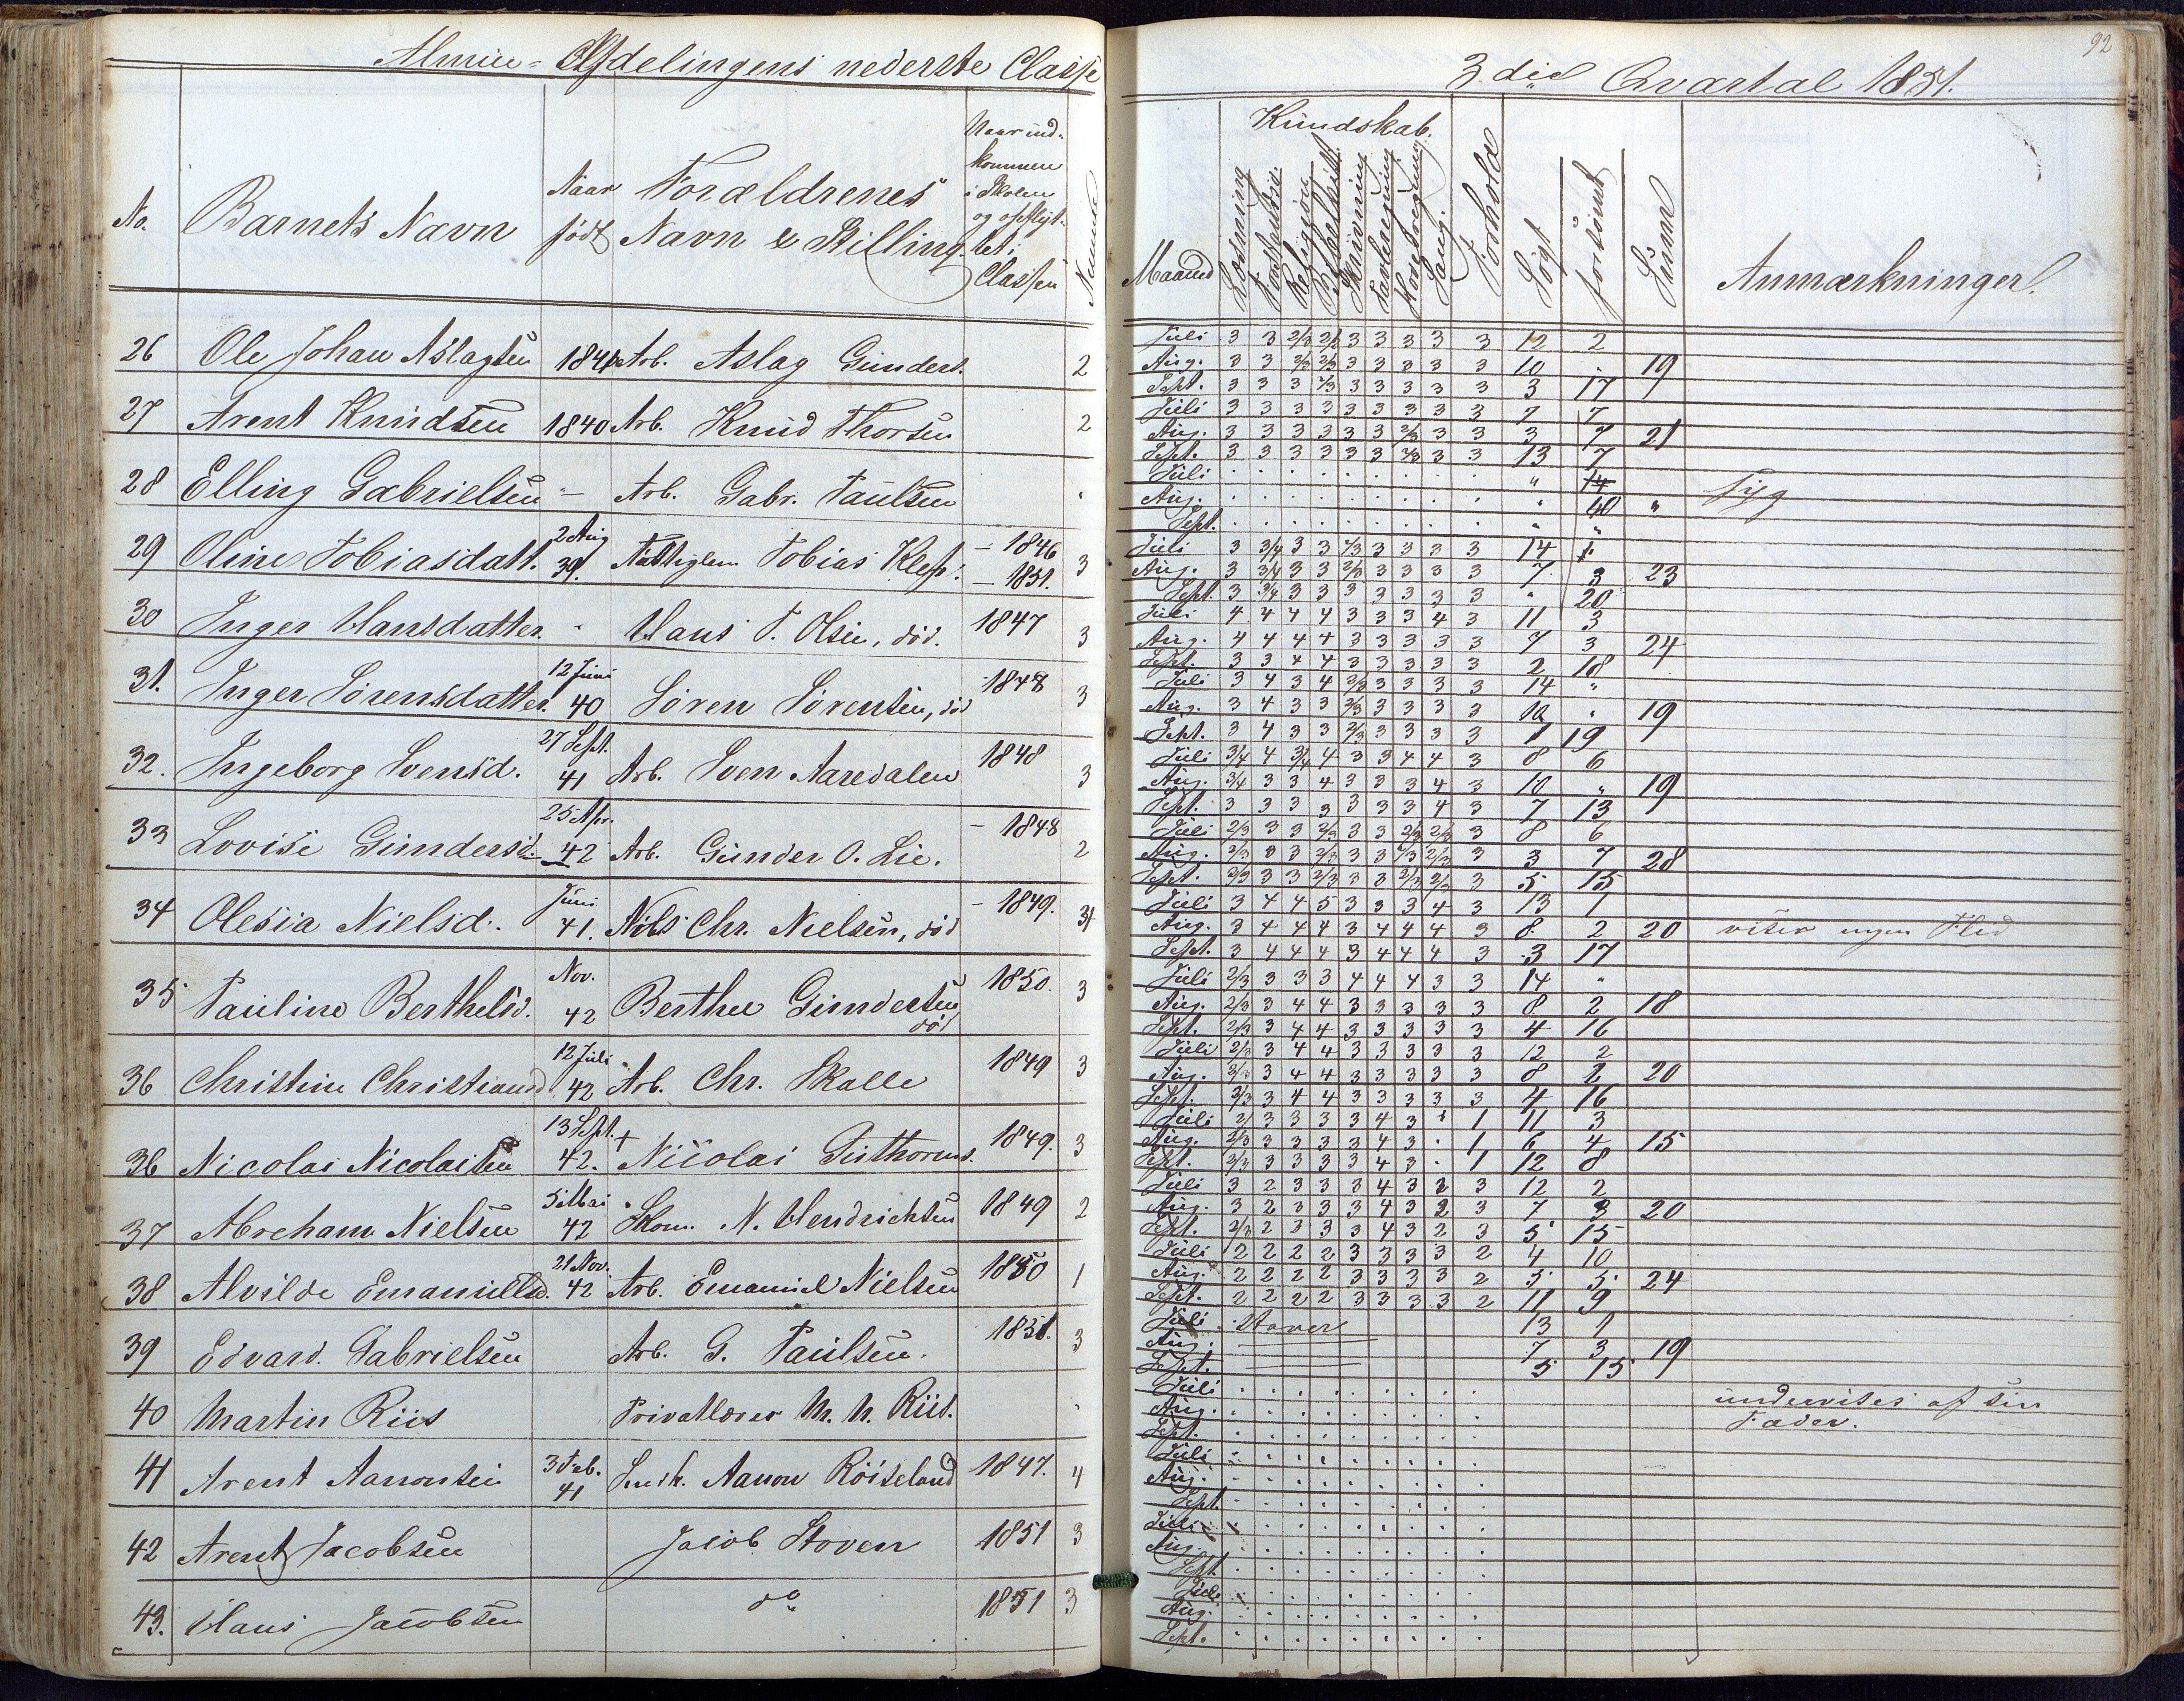 Almue-Afdelingens nederste Classe
No.
Barnets Navn
Naar født
Forældrenes Navn & Stilling.
Naar ind-
kommen
i Skolen
og opflyt-
tet i
Classen
26 Ole Johan Aslagsen 1841 Arb. Aslag Gunders. 2
27 Arent Knudsen 1840 Arb. Knud Thorsen 2
28 Elling Gabrielsen - Arb. Gabr. Paulsen
29 Oline Tobiasdatt. 2 Aug 39. Tobias Klep. - 1846 - 1851. 3
30 Inger Hansdatter. Hans T. Olsen, død. 1847 3
31. Inger Sørensdatter. 12 Juni 40 Søren Sørensen, død 1848 3
32. Ingeborg Svensd. 27 Sept. 41 Arb. Sven Aaredalen 1848 3
33 Lovise Gundersd. 25 Apr. 42 Arb. Gunder O. Lie. - 1848 2
34 Olesia Nielsd. Juni 41. Niels Chr. Nielsen, død - 1849.
35 Pauline Berthelsd. Nov. 42 Berthel Gundersen død 1850. 3
36 Christine Christiansd 12 Juli 42 Arb. Chr. Skalle 1849 3
36 Nicolai Nicolaisen 13 Sept. 42. + Nicolai 1849. 3
37 Abreham Nielsen 5 Mai 42 Skom. N. Hendrichsen 1849 2
38 Alvilde Emanuelsd. 21 Nov. 42 Arb. Emanuel Nielsen 1850 1
39 Edvard Gabrielsen Arb. G. Paulsen. 1851. 3
40 Martin Riis Privatlærer M. N. Riis.
41 Arent Aanonsen 3 Feb. 41 Aanon Röiseland 1847. 4
42 Arent Jacobsen Jacob Stoven 1851 3
43. Hans Jacobsen do 1851 3
92
3die Qvartal 1851.
Maaned
Kundskab.
Læsning
Forstandsøv.
Religion
Bibelhist.
Skrivning
Tavleregning
Hovedregning
Sang.
Forhold
Søgt
forsømt
Summ
Anmærkninger.
Juli 3 3 2/3 2/3 3 3 3 3 3 12 2
Aug. 3 3 2/3 2/3 3 3 3 3 3 10 . 19
Sept. 3 3 3 2/3 3 3 3 3 3 3 17
Juli 3 3 3 3 3 3 3 3 3 7 7
Aug. 3 3 3 3 3 3 2/3 3 3 3 7 21
Sept. 3 3 3 3 3 3 2/3 3 3 13 7
Juli . . . . . . . . . " 14 Syg
Aug. . . . . . . . . . "
Sept. . . . . . . . . . " "
Juli 3 3/4 3 3 2/3 3 3 3 3 14
Aug. 3 3/4 3 3 2/3 3 3 3 3 7 3 23
Sept. 3 3/4 3 3 3 3 3 3 3 " 20
Juli 4 4 4 4 3 3 3 4 3 11 3
Aug. 4 4 4 4 3 3 3 3 3 7 3 24
Sept. 3 3 4 4 3 3 3 3 3 2 18
Juli 3 4 3 4 2/3 3 3 3 3 14 "
Aug. 3 4 3 3 2/3 3 3 3 3 10 " 19
Sept. 3 4 3 3 2/3 3 3 3 3 1 19
Juli 3/4 4 3/4 4 3 3 4 4 3 8 6
Aug. 3/4 3 3 4 3 3 3 4 3 10 " 19
Sept. 3 3 3 3 3 3 3 4 3 7 13
Juli 2/3 3 3 2/3 3 3 2/3 2/3 3 8 6
Aug. 2/3 3 3 2/3 3 3 2/3 2/3 3 3 7 28
Sept. 2/3 3 3 2/3 3 3 2/3 2/3 3 5 15
Juli 3 4 4 5 3 3 3 4 3 13 1
Aug. 3 4 4 4 3 4 4 4 3 8 2 20 viser ingen Flid
Sept. 3 4 4 4 3 4 4 4 3 3 17
Juli 2/3 3 3 3 4 4 4 3 3 14 "
Aug. 2/3 3 4 4 3 3 3 3 3 8 2 18
Sept. 2/3 3 4 4 3 3 3 3 3 4 16
Juli 2/3 3 4 4 3 3 3 3 3 12 2
Aug. 2/3 3 4 4 3 3 3 3 3 8 2 20
Sept. 2/3 3 4 4 3 3 3 3 3 4 16
Juli 2/3 3 3 3 3 4 3 . 1 11 3
Aug. 2/3 3 3 3 3 4 3 . 1 6 4 15
Sept. 2/3 3 3 3 3 4 3 . 1 12 8
Juli 3 2 3 3 3 4 3 2 3 12 2
Aug. 3 2 3 3 3 4 3 2 3 7 3 20
Sept. 2/3 2 3 3 3 4 3 2 3 5 15
Juli 2 2 2 2 3 3 3 3 2 4 10
Aug. 2 2 2 2 3 3 3 3 2 5 5 24
Sept. 2 2 2 2 3 3 3 3 2 11 9
Juli Staver 13 1
Aug. 7 3 19
Sept. 5 15
Juli . . . . . . . . . undervises af sin
Aug. . . . . . . . . . Fader.
Sept. . . . . . . . . .
Juli . . . . . . . . .
Aug. . . . . . . . . .
Sept. . . . . . . . . .
Juli . . . . . . . . .
Aug. . . . . . . . . .
Sept. . . . . . . . . .
Juli . . . . . . . . .
Aug. . . . . . . . . .
Sept. . . . . . . . . .